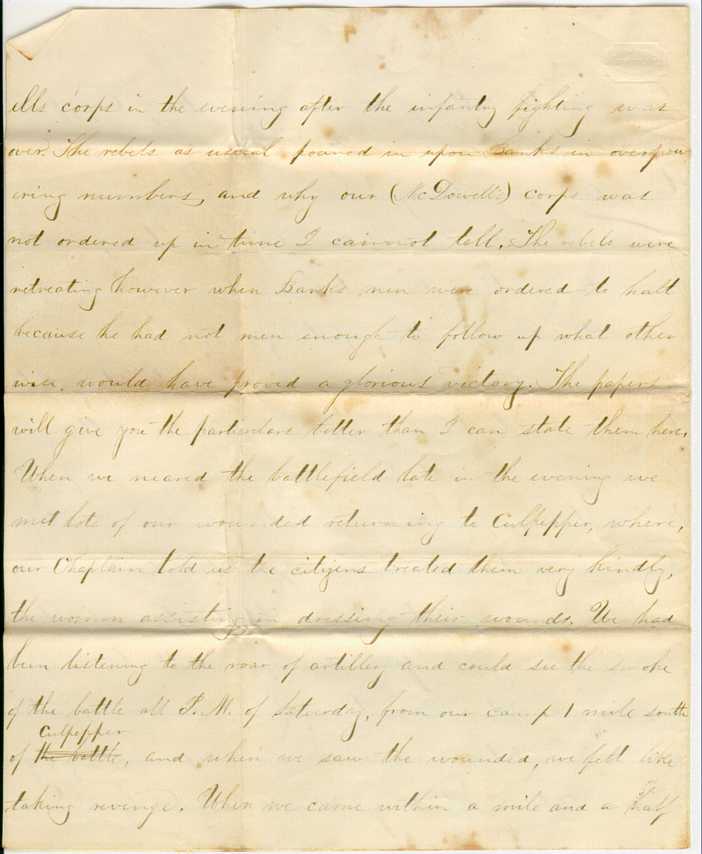 ells corps in the evening after the infantry fighting was
over. The rebels as usual poured in upon Banks in overpow
ering numbers, and why our (McDowell's) corps was
not ordered up in time I cannot tell. The rebels were
retreating however when Banks men were ordered to halt
because he had not men enough to follow up what other
wise would have proved a glorious victory. The papers
will give you the particulars better than I can state them here.
When we neared the battlefield late in the evening we
met lots of our wounded returning to Culpepper, where,
our Chaplain told us the citizens treated them very kindly,
the women assisting in dressing their wounds. We had
been listening to the roar of artillery and could see the smoke
of the battle all P.M. of Saturday, from our camp 1 mile south
Culpepper
of the battle, and when we saw the wounded, we felt like
taking revenge. When we came within a mile and a half